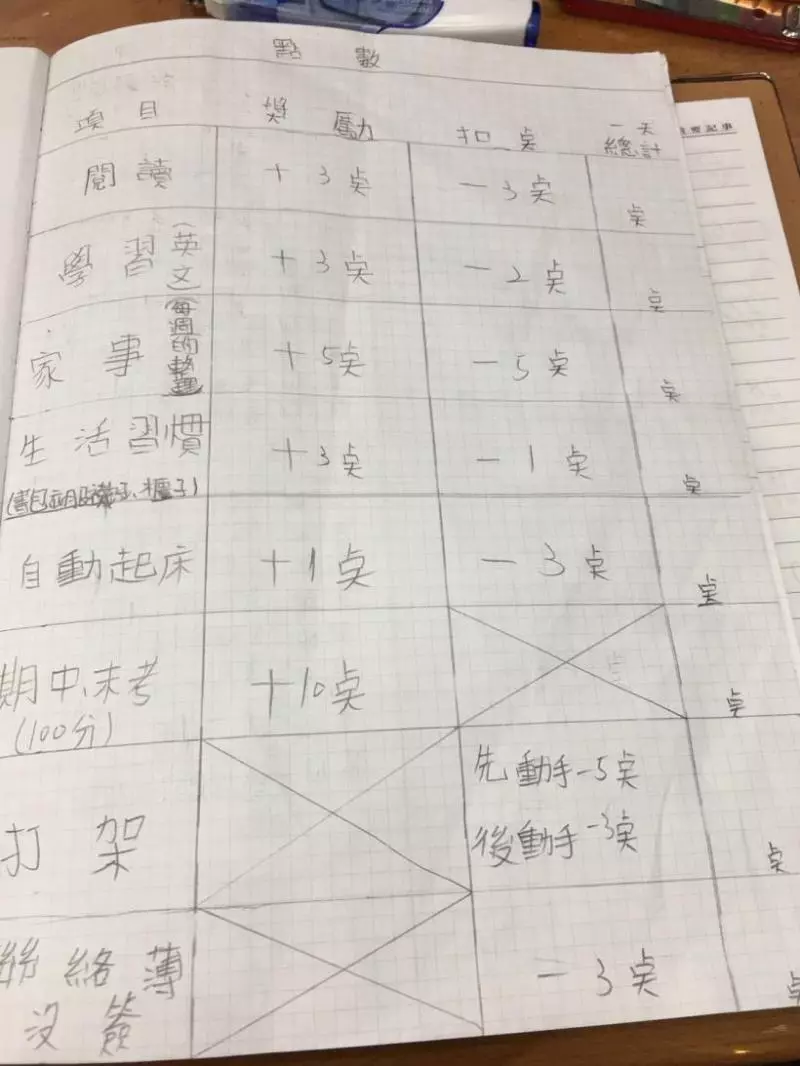 點數
項目 獎勵 扣点 一天總計
閱讀 +3点 -3点 点
學習(英文) +3点 -2点 点
家事(每週的整理) +5点 -5点 点
生活習慣 +3点 -1点 点
自動起床 +1点 -3点 点
期中、末考 +10点 点
(100分)
先動手-5点
打架 後動手-3点 点
聯絡薄 -3点 点
沒簽
要記事